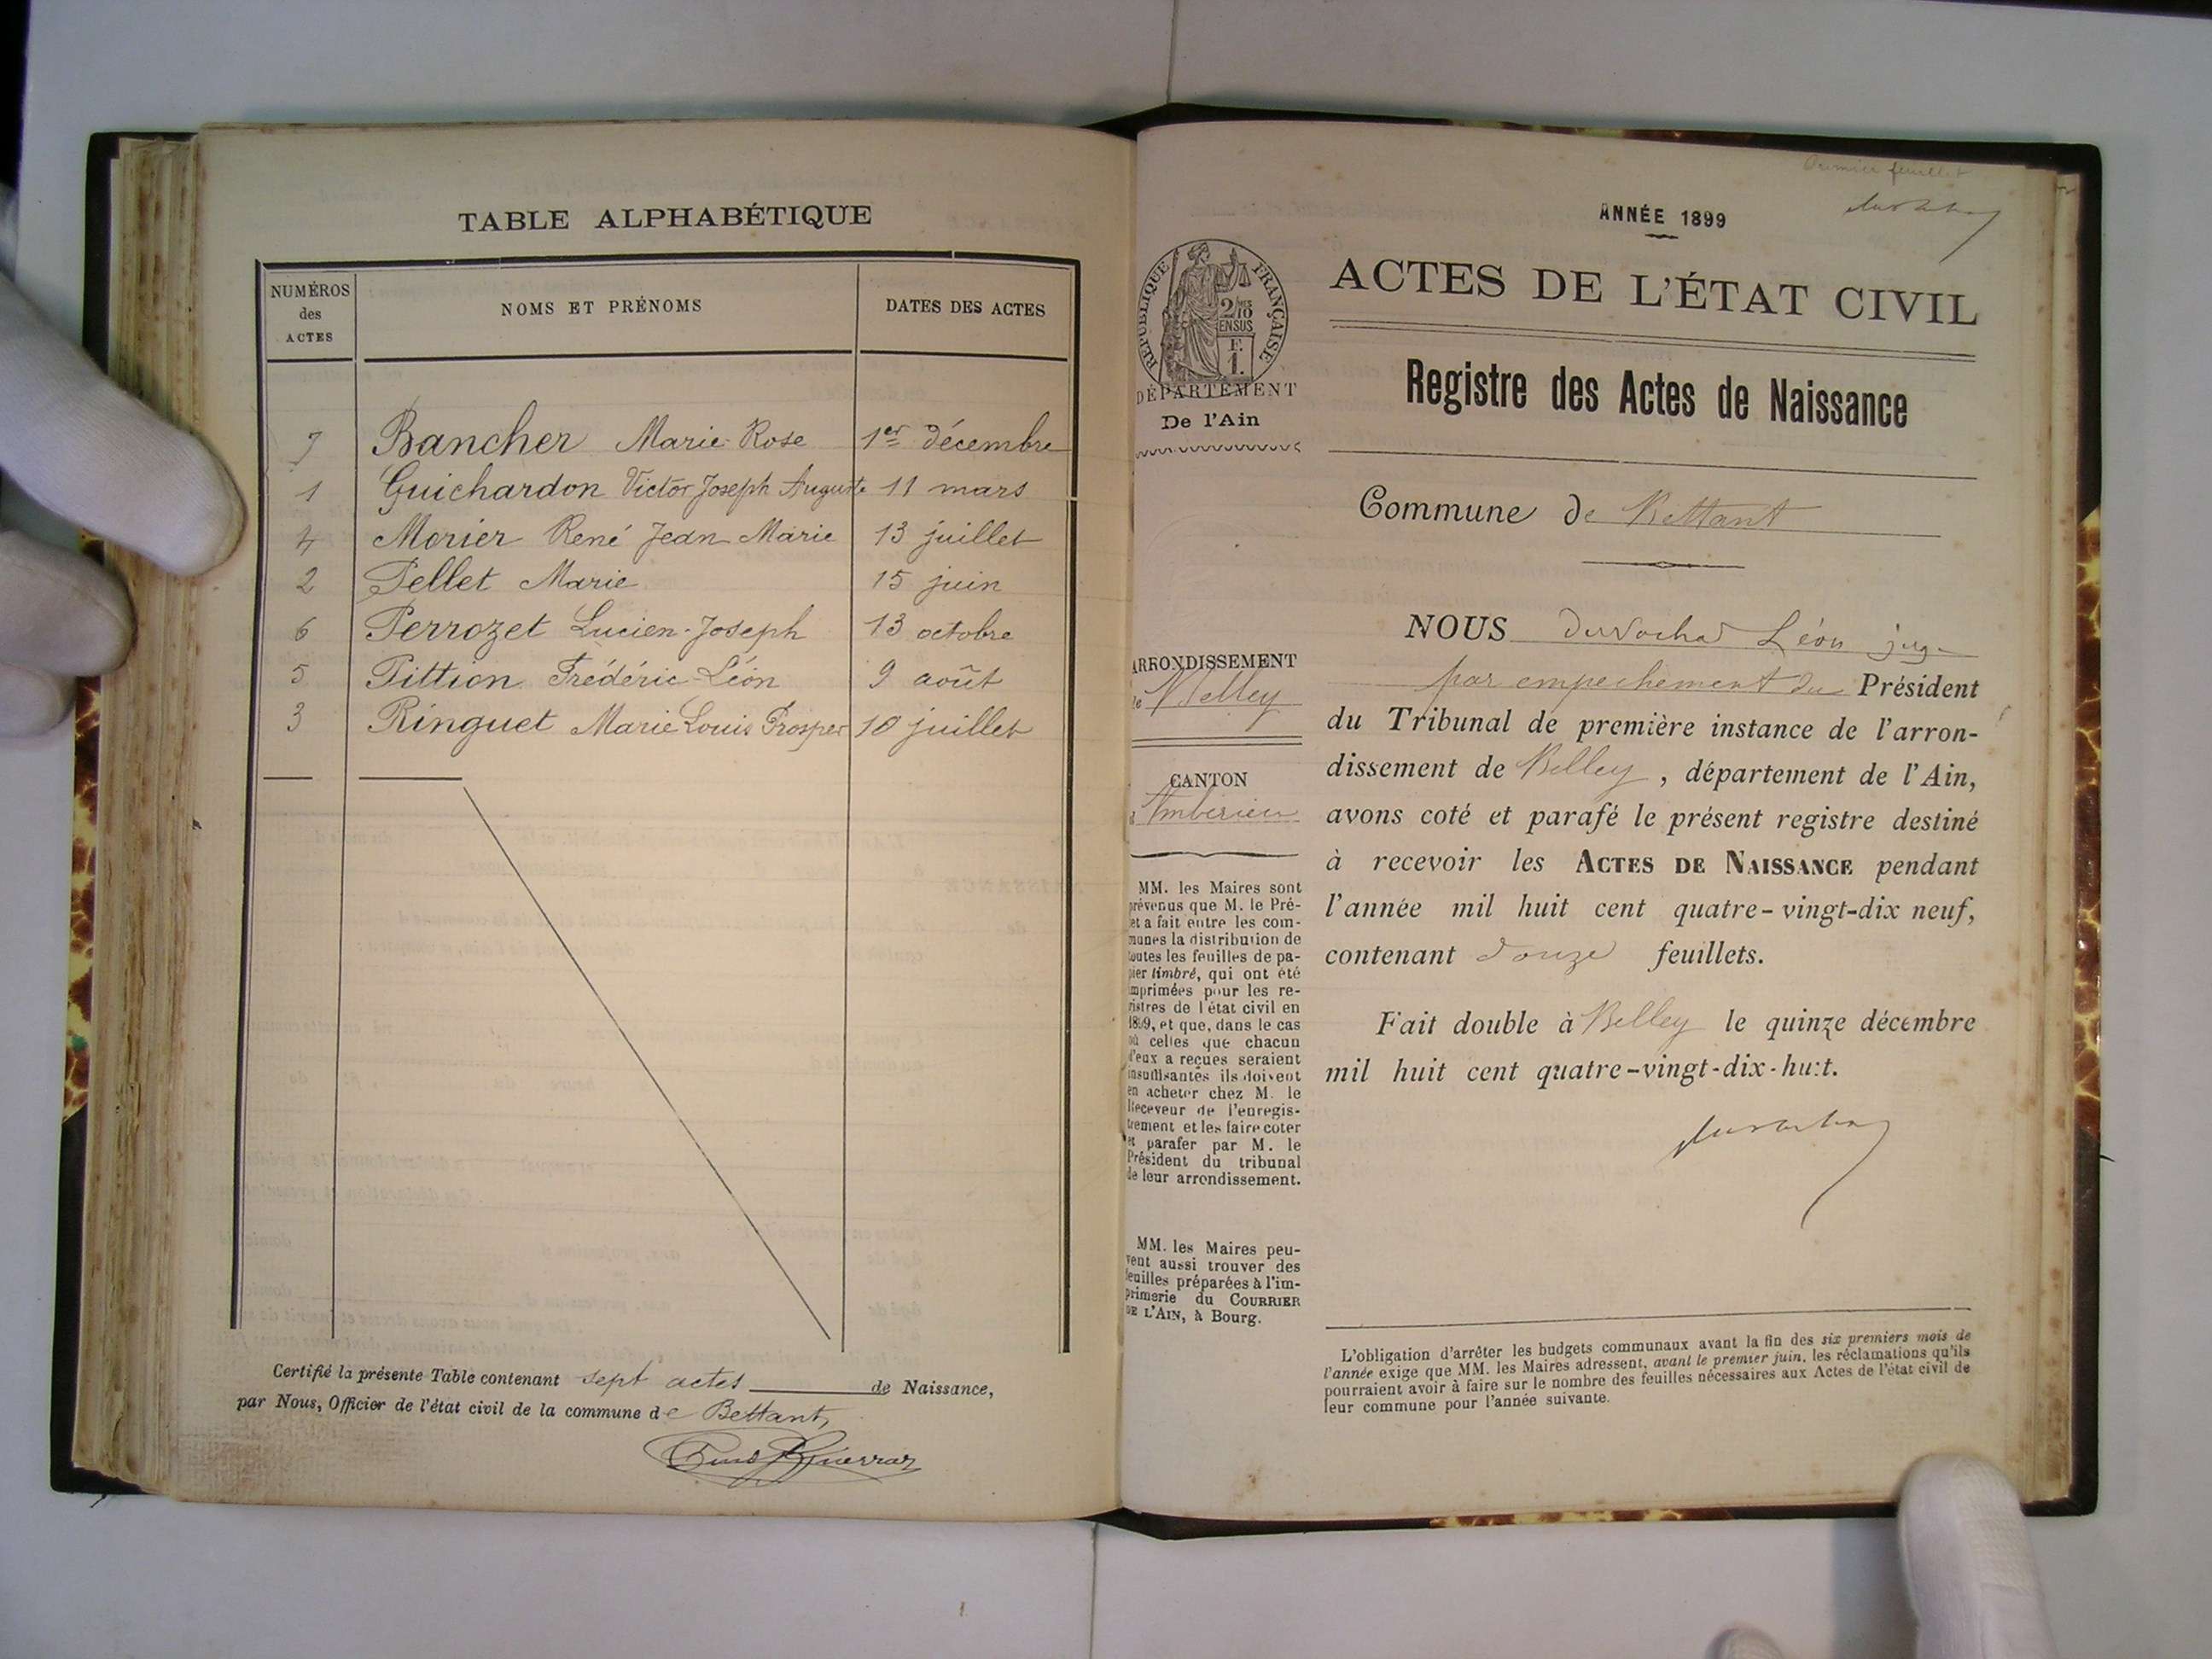 TABLE ALPHABÉTIQUE
NUMÉROS des ACTES
NOMS ET PRÉNOMS
DATES DES ACTES
7 Bancher Marie Rose 1er décembre
1 Guichardon Victor Joseph Auguste 11 mars
4 Morier René Jean Marie 13 juillet
2 Pellet Marie 15 juin
6 Perrozet Lucien-Joseph 13 octobre
5 Pittion Frédéric-Léon 9 août
3 Ringuet Marie Louis Prosper 10 juillet
Certifié la présente Table contenant sept actes de Naissance,
par Nous, Officier de l'état civil de la commune de Bettant,
Premier feuillet
ANNÉE 1899
RÉPUBLIQUE FRANÇAISE
2/10 EN SUS
F. 1.
DÉPARTEMENT
De l'Ain
ARRONDISSEMENT
de Belley
CANTON
d'Ambérieu
MM. les Maires sont
prévenus que M. le Pré-
et a fait entre les com-
munes la distribution de
toutes les feuilles de pa-
pier timbré, qui ont été
imprimées pour les re-
gistres de l'état civil en
1899, et que, dans le cas
où celles que chacun
d'eux a reçues seraient
insuffisantes ils doivent
en acheter chez M. le
Receveur de l'enregis-
trement et les faire coter
et parafer par M. le
Président du tribunal
de leur arrondissement.
MM. les Maires peu-
vent aussi trouver des
feuilles préparées à l'im-
primerie du COURRIER
DE L'AIN, à Bourg.
ACTES DE L'ÉTAT CIVIL
Registre des Actes de Naissance
Commune de Bettant
NOUS Durochat Léon juge
par empechement du Président
du Tribunal de première instance de l'arron-
dissement de Belley, département de l'Ain,
avons coté et parafé le présent registre destiné
à recevoir les ACTES DE NAISSANCE pendant
l'année mil huit cent quatre-vingt-dix neuf,
contenant douze feuillets.
Fait double à Belley le quinze décembre
mil huit cent quatre-vingt-dix-huit.
L'obligation d'arrêter les budgets communaux avant la fin des six premiers mois de
l'année exige que MM. les Maires adressent, avant le premier juin, les réclamations qu'ils
pourraient avoir à faire sur le nombre des feuilles nécessaires aux Actes de l'état civil de
leur commune pour l'année suivante.